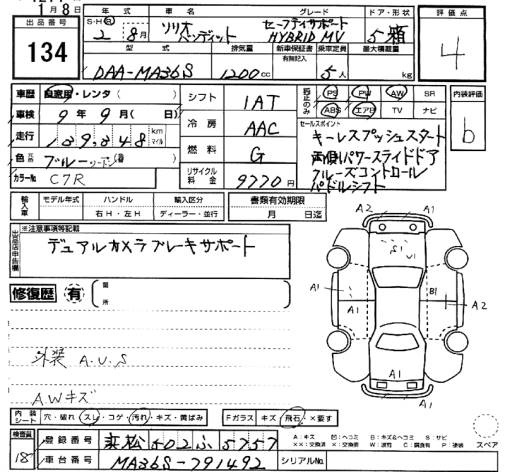 1月8日
出品番号 134
S・H・R 年式 2年8月
車名 ソリオ バンディット
グレード セーフティサポート HYBRID MV
ドア・形状 5 箱
評価点 4
型式 DAA-MA36S
排気量 1200 cc
新車保証書 有無記入
乗車定員 5人
最大積載量 kg
車歴 自家用・レンタ( )
シフト 1AT
純正のみ PS PW AW SR
ABS エアB TV ナビ
内装評価 b
車検 9年9月( 日)
冷房 AAC
セールスポイント
キーレスプッシュスタート
両側パワースライドドア
クルーズコントロール
パドルシフト
走行 139348 km マイル
燃料 G
色 ブルー
カラーNo. C7R
リサイクル料金 9770円
輸入車 モデル年式 ハンドル 右H・左H 輸入区分 ディーラー・並行
書類有効期限 月 日迄
※注意事項等記載
デュアルカメラブレーキサポート
修復歴 有 箇所
外装 A.U.S
AWキズ
A2 A1
S1
U1
A1 A1 B1 A2
A1
A1
内装シート 穴・破れ スレ・コゲ・汚れ・キズ・黄ばみ
Fガラス キズ・飛石・×要す
検査員 18
登録番号 浜松 502 ふ 5757
車台番号 MA36S-791492
シリアルNo.
A:キズ 凹:ヘコミ B:キズ&ヘコミ S:サビ
××:交換済 ×:交換 W:波形 C:腐食有 P:塗装
スペア